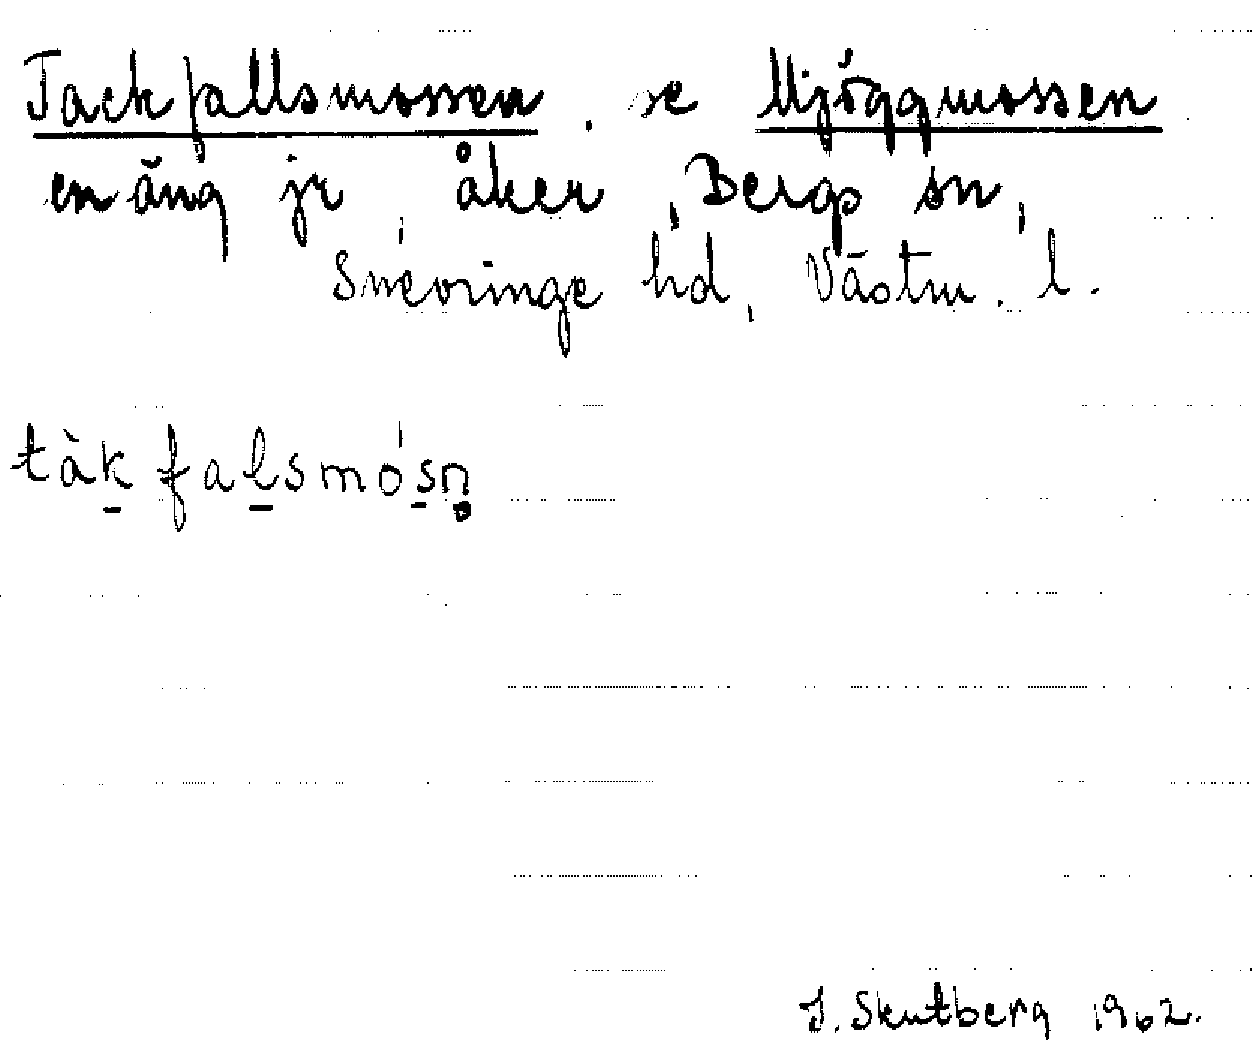 Tackfallsmossen, se Mjöggmossen
en äng jr, åker, Bergs sn,
Snevringe hd, Västm. l.
tàk falsmósn̥
J. Skutberg 1962.